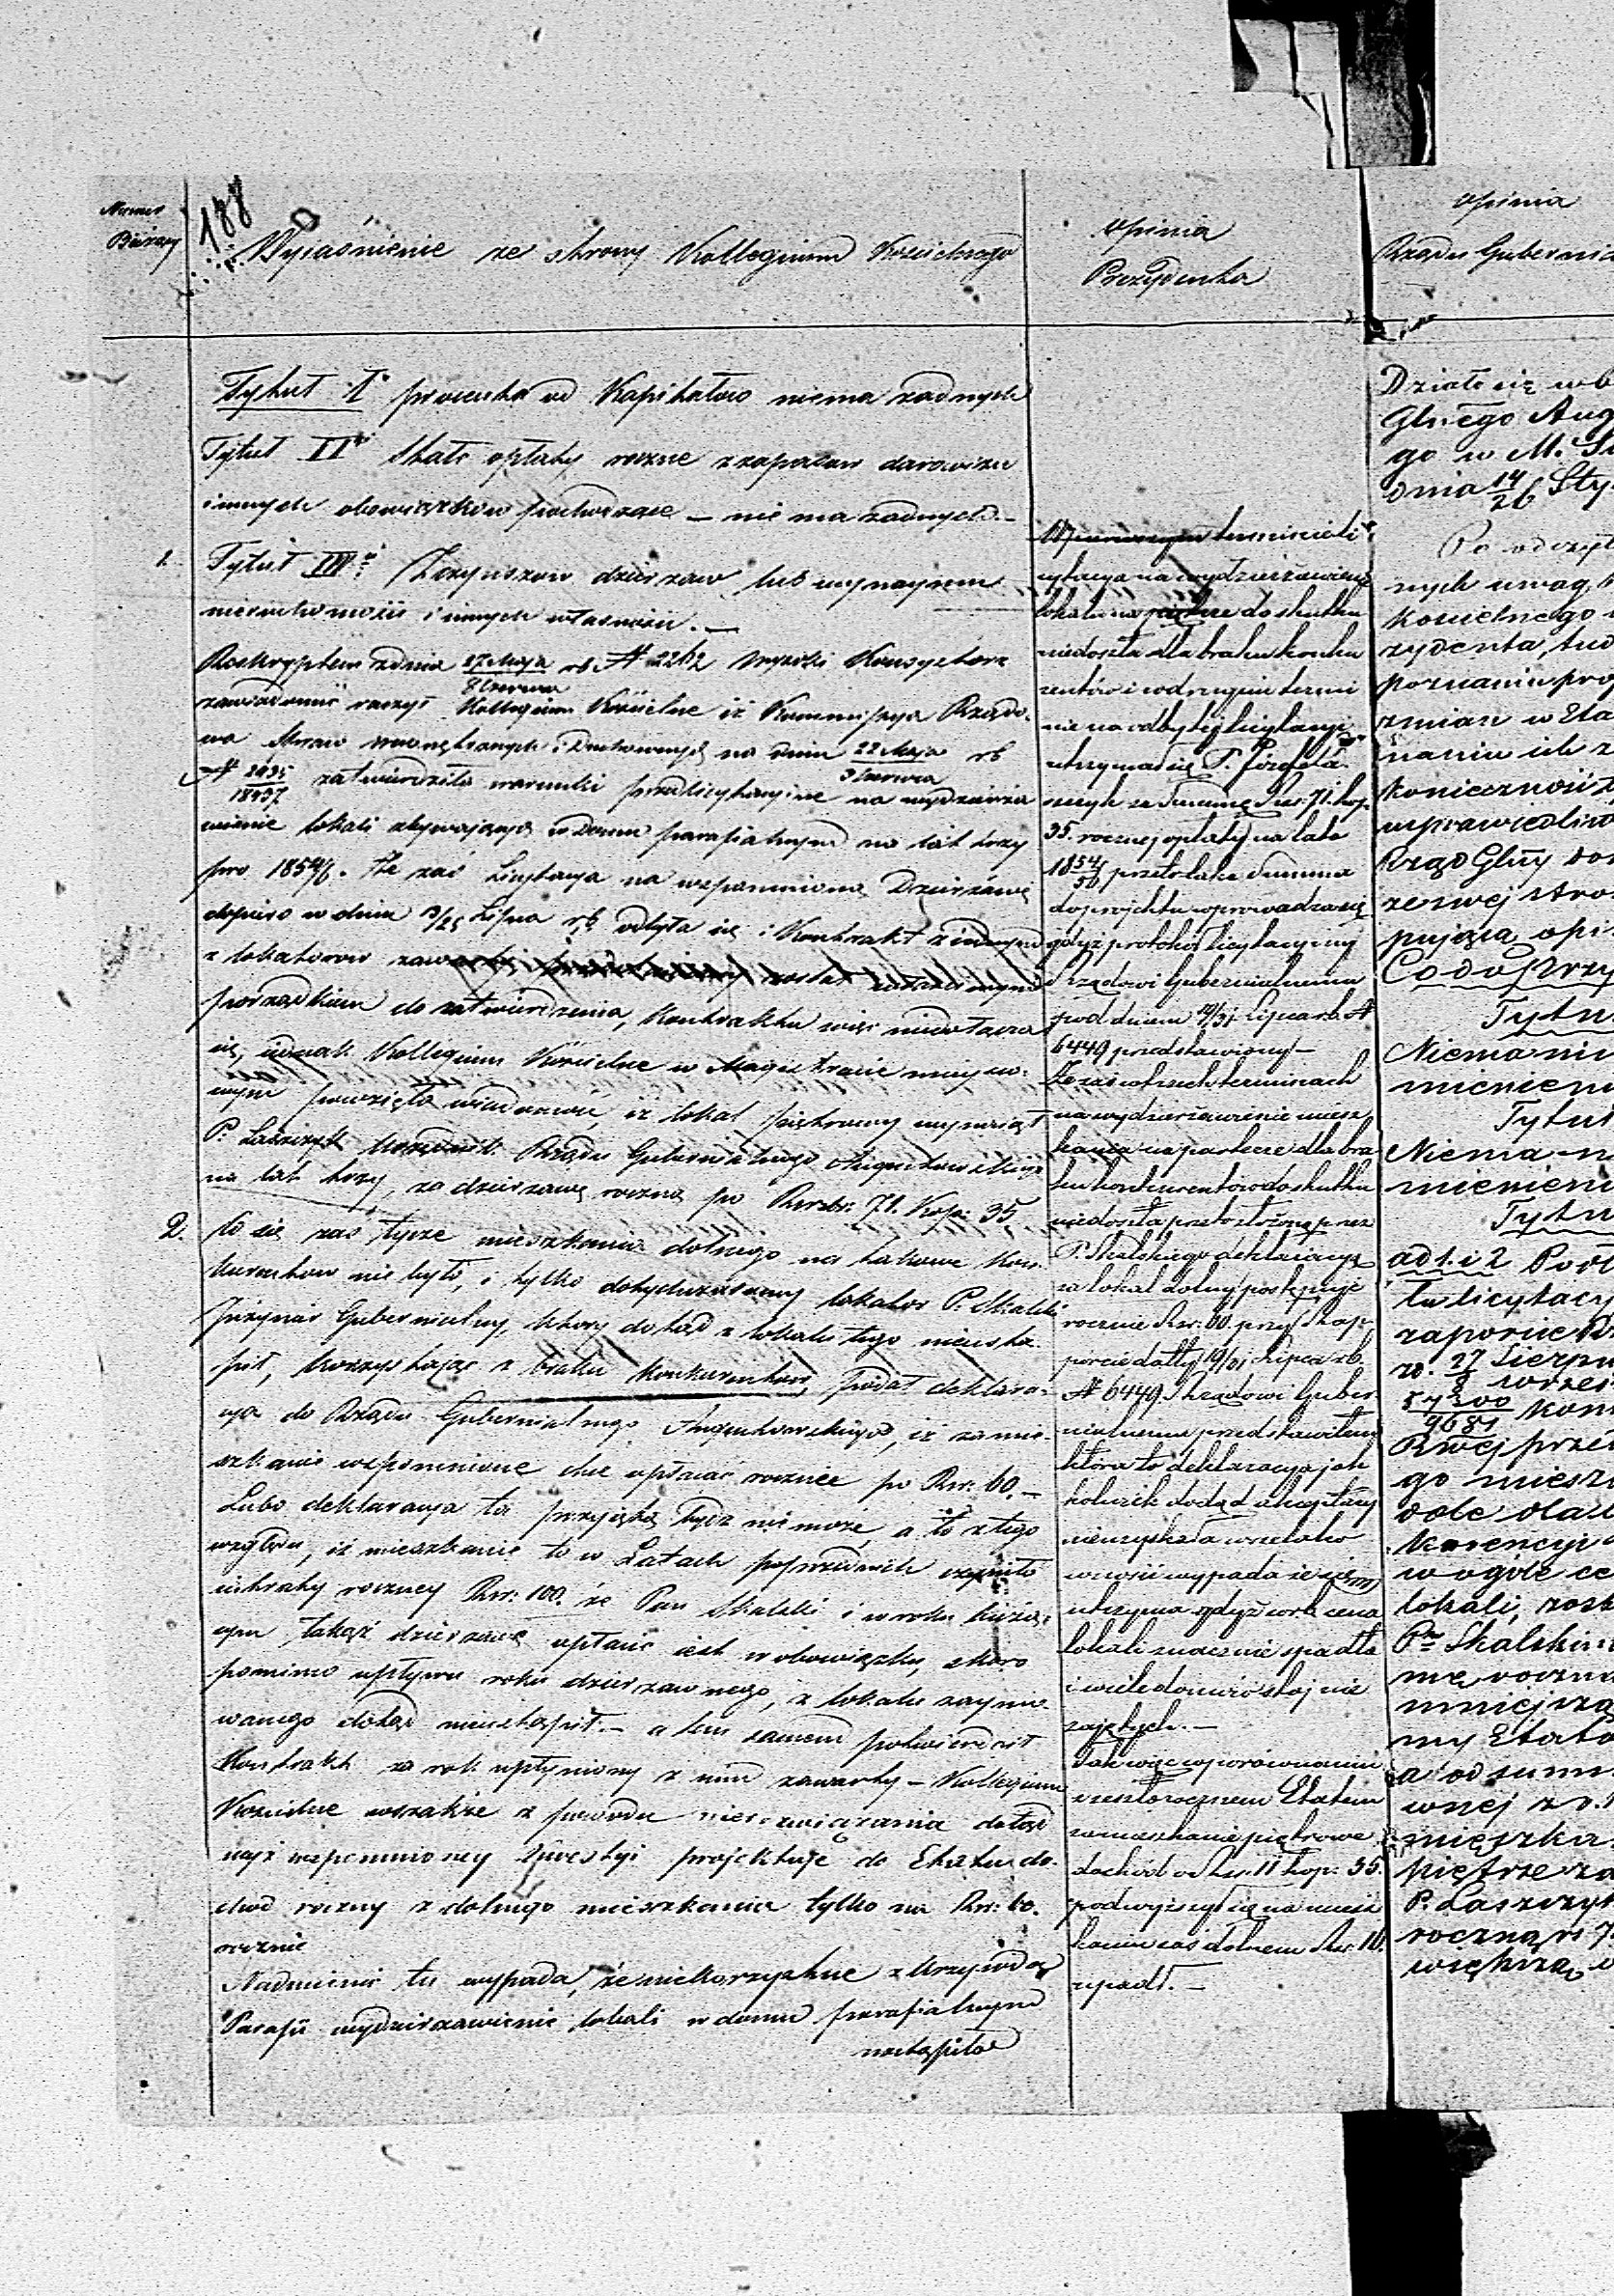 Numer
Bieżący
188
Wyjaśnienie ze strony Kollegium Kościelnego
Tytuł I° procenta od Kapitałów niema żadnych
Tytuł II° Stałe opłaty roczne z zapisów darowizn
i innych obowiązków pochodzące – nie ma żadnych –
1. Tytuł III° Z czynszów dzierżaw lub wynajem
nieruchomości i innych własności. –
Reskryptem z dnia 27 Maja / 8 Czerwca rb. N 2262 Wysoki Konsystorz
zawiadomić raczył Kollegium Kościelne iż Kommissya Rządo-
wa Spraw Wewnętrznych i Duchownych na dniu 22 Maja / 3 Czerwca rb
N 2935/18437 zatwierdziła warunki przedlicytacyjne na wydzierża-
wienie lokali zbywających w Domu parafialnym na lat trzy
pro 1854/6. Że zaś Licytacya na wspomnioną Dzierżawę
dopiero w dniu 13/25 Lipca rb odbyła się i Kontrakt z jednym
z lokatorów
porządkiem do zatwierdzenia, Kontraktu więc niedołącza
się, jednak Kollegium Kościelne w Magistracie miejsco-
wym powzięło wiadomość, iż lokal piętrowy wynajął
P. Łaszczyk Urzędnik Rządu Gubernialnego Augustowskiego
na lat trzy, za dzierżawę roczną po Rsrebr: 71. Kop: 35
2. Co się zaś tycze mieszkania dolnego na takowe Kon-
kurentów nie było, i tylko dotychczasowy lokator P. Skalski
Inżynier Gubernialny, który dotąd z lokalu tego nieustą-
pił, korzystając z braku Konkurentów, podał deklara-
cyą do Rządu Gubernialnego Augustowskiego, iż za mie-
szkanie wspomnione chce opłacać rocznie po Rsr: 60. –
Lubo deklaracya ta przyjętą bydź nie może, a to z tego
względu, iż mieszkanie to w Latach poprzednich czyniło
intraty roczney Rsr: 100. że Pan Skalski i w roku bieżą-
cym takąż dzierżawę opłacić jest w obowiązku, skoro
pomimo upływu roku dzierżawnego, z lokalu zajmo-
wanego dotąd nieustąpił. – a tem samem potwierdził
Kontrakt za rok upłyniony z nim zawarty – Kollegium
Kościelne wszakże z powodu nierozwiązania dotąd
wspomnioney kwestyi projektuje do Etatu do-
chód roczny z dolnego mieszkania tylko na Rsr: 60.
rocznie
Nadmienić tu wypada, że niekorzystne z krzywdą
Parafii wydzierżawienie lokali w domu parafialnym
nastąpiło
Opinia
Prezydenta
W pierwszym terminie li-
cytacya na wydzierżawienie
lokalu na piętrze do skutku
niedoszła dla braku konku-
rentów i w drugim termi-
nie na odbytej licytacyi
utrzymał się P. Józef Ła-
szczyk za Summę Rsr. 71. kop.
35. rocznej opłaty na lata
1854/56, przeto taka Summa
do projektu wprowadza się
gdyż protokoł licytacyiny
Rządowi Gubernialnemu
pod dniem 19/31 Lipca rb. N
6449 przedstawiony –
Że zaś w trzech terminach
na wydzierżawienie miesz-
kania na parterze dla bra-
ku konkurentów do skutku
niedoszła przeto złożoną przez
P. Skalskiego deklaracyę
za lokal dolny postępuje
rocznie Rsr. 60 przy Rap-
porcie datty 19/31 Lipca rb.
N 6449 Rządowi Guber-
nialnemu przedstawiłem
która to deklaracya jak-
kolwiek dotąd akceptacyi
nieuzyskała wszelako
wnosić wypada że się
utrzyma gdyż w rb cena
lokali znacznie spadła
i wiele domów stoj nie
zajętych. –
Tak więc w porównaniu
z zeszłorocznem Etatem
za mieszkanie piętrowe
dochód o Rsr. 11 kop. 35
podwyższył się na miesz-
kaniu zaś dolnem Rsr. 10.
upadł. –
Opinia
Rządu Gubernia
Działo się w b
Głnego Aug
go w M. Su
dnia 14/26 Sty
Po odczyt
nych uwag K
Kościelnego
zydenta, tud
poznaniu pro
zmian w Eta
naniu ich z
konieczności
usprawiedliw
Rząd Głny
ze swej stro
pującą opi
Co do Przy
Tytu
Niema nic
mienieni
Tytuł
Niema n
mienieni
Tytu
ad 1. i 2 Podł
tu licytacy
raporcie
27 Sierpn
8 wrześ
57200
9681 Kom
Rwej prze
go miesz
dole dla
kurencyi
w ogóle ce
lokali, zost
Pnu Skalskim
mę roczn
mniejszą
my Etato
a od summ
wnej z
mieszka
piętrze za
P. Łaszczyk
roczną rs 7
większą o